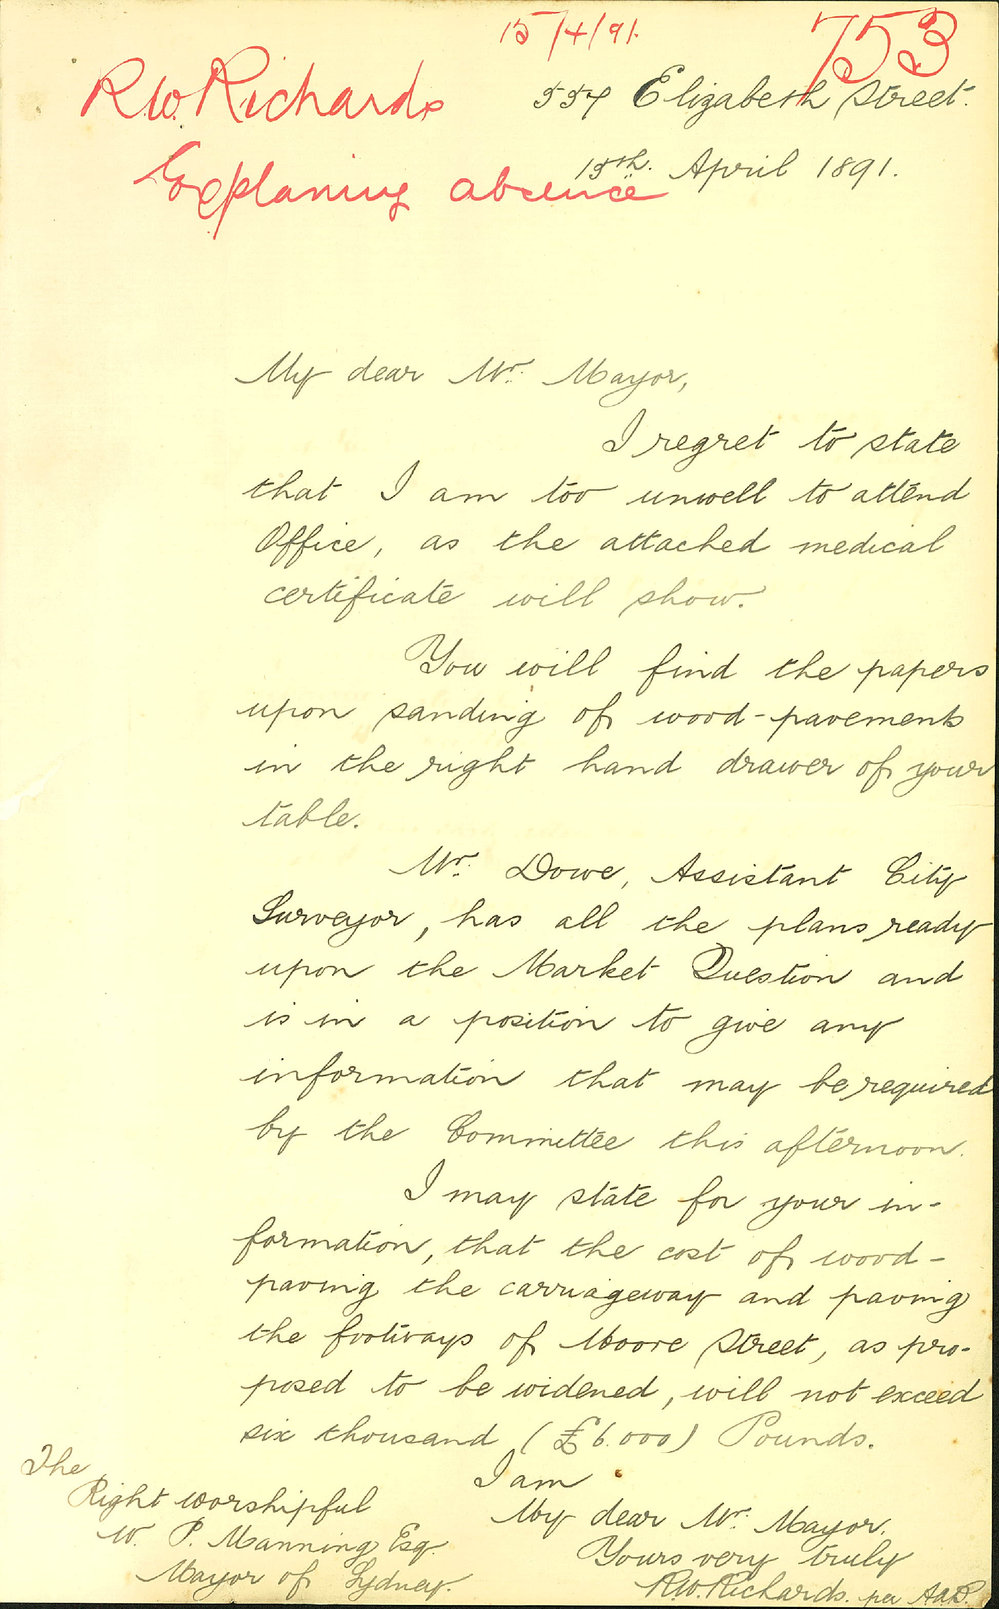 15/4/91.
753
R.W. Richards
Explaning absence
557 Elizabeth Street.
15th. April 1891.
My dear Mr. Mayor,
I regret to state
that I am too unwell to attend
Office, as the attached medical
certificate will show.
You will find the papers
upon sanding of wood-pavements
in the right hand drawer of your
table.
Mr. Dowe, Assistant City
Surveyor, has all the plans ready
upon the Market Question and
is in a position to give any
information that may be required
by the Committee this afternoon.
I may state for your in-
formation, that the cost of wood-
paving the carriageway and paving
the footways of Moore Street, as pro-
posed to be widened, will not exceed
six thousand (£6.000) Pounds.
I am
My dear Mr. Mayor.
Yours very truly
R.W. Richards. per
The
Right Worshipful
W. P. Manning Esq.
Mayor of Sydney.